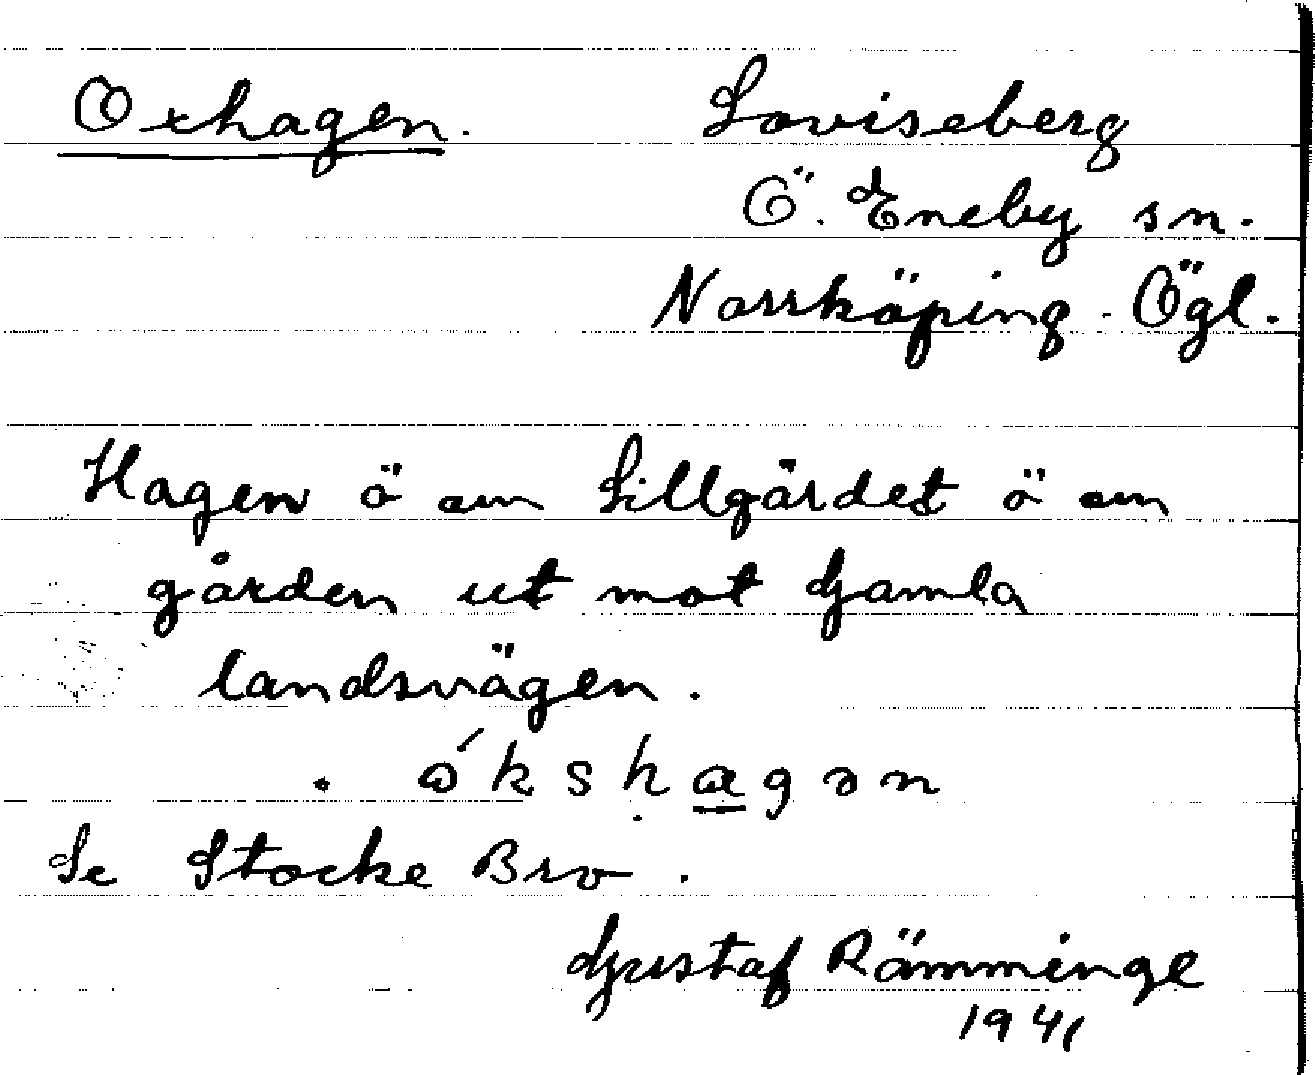 Oxhagen.
Loviseberg
Ö. Eneby sn.
Norrköping. Ögl.
Hagen ö om Lillgärdet ö om
gården ut mot Gamla
landsvägen.
. ókshagən
Se Stocke Bro.
Gustaf Rämminge
1941